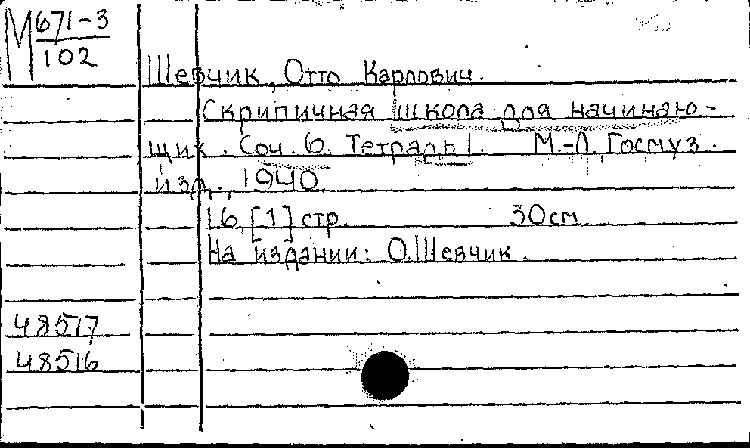 М 671-3
102
Шевчик, Отто Карлович.
Скрипичная школа для начинаю-
щих. Соч. 6. Тетрадь 1. М.-Л., Госмуз.
изд., 1940.
16, [1] стр. 30см.
На издании: О.Шевчик.
48517
48516